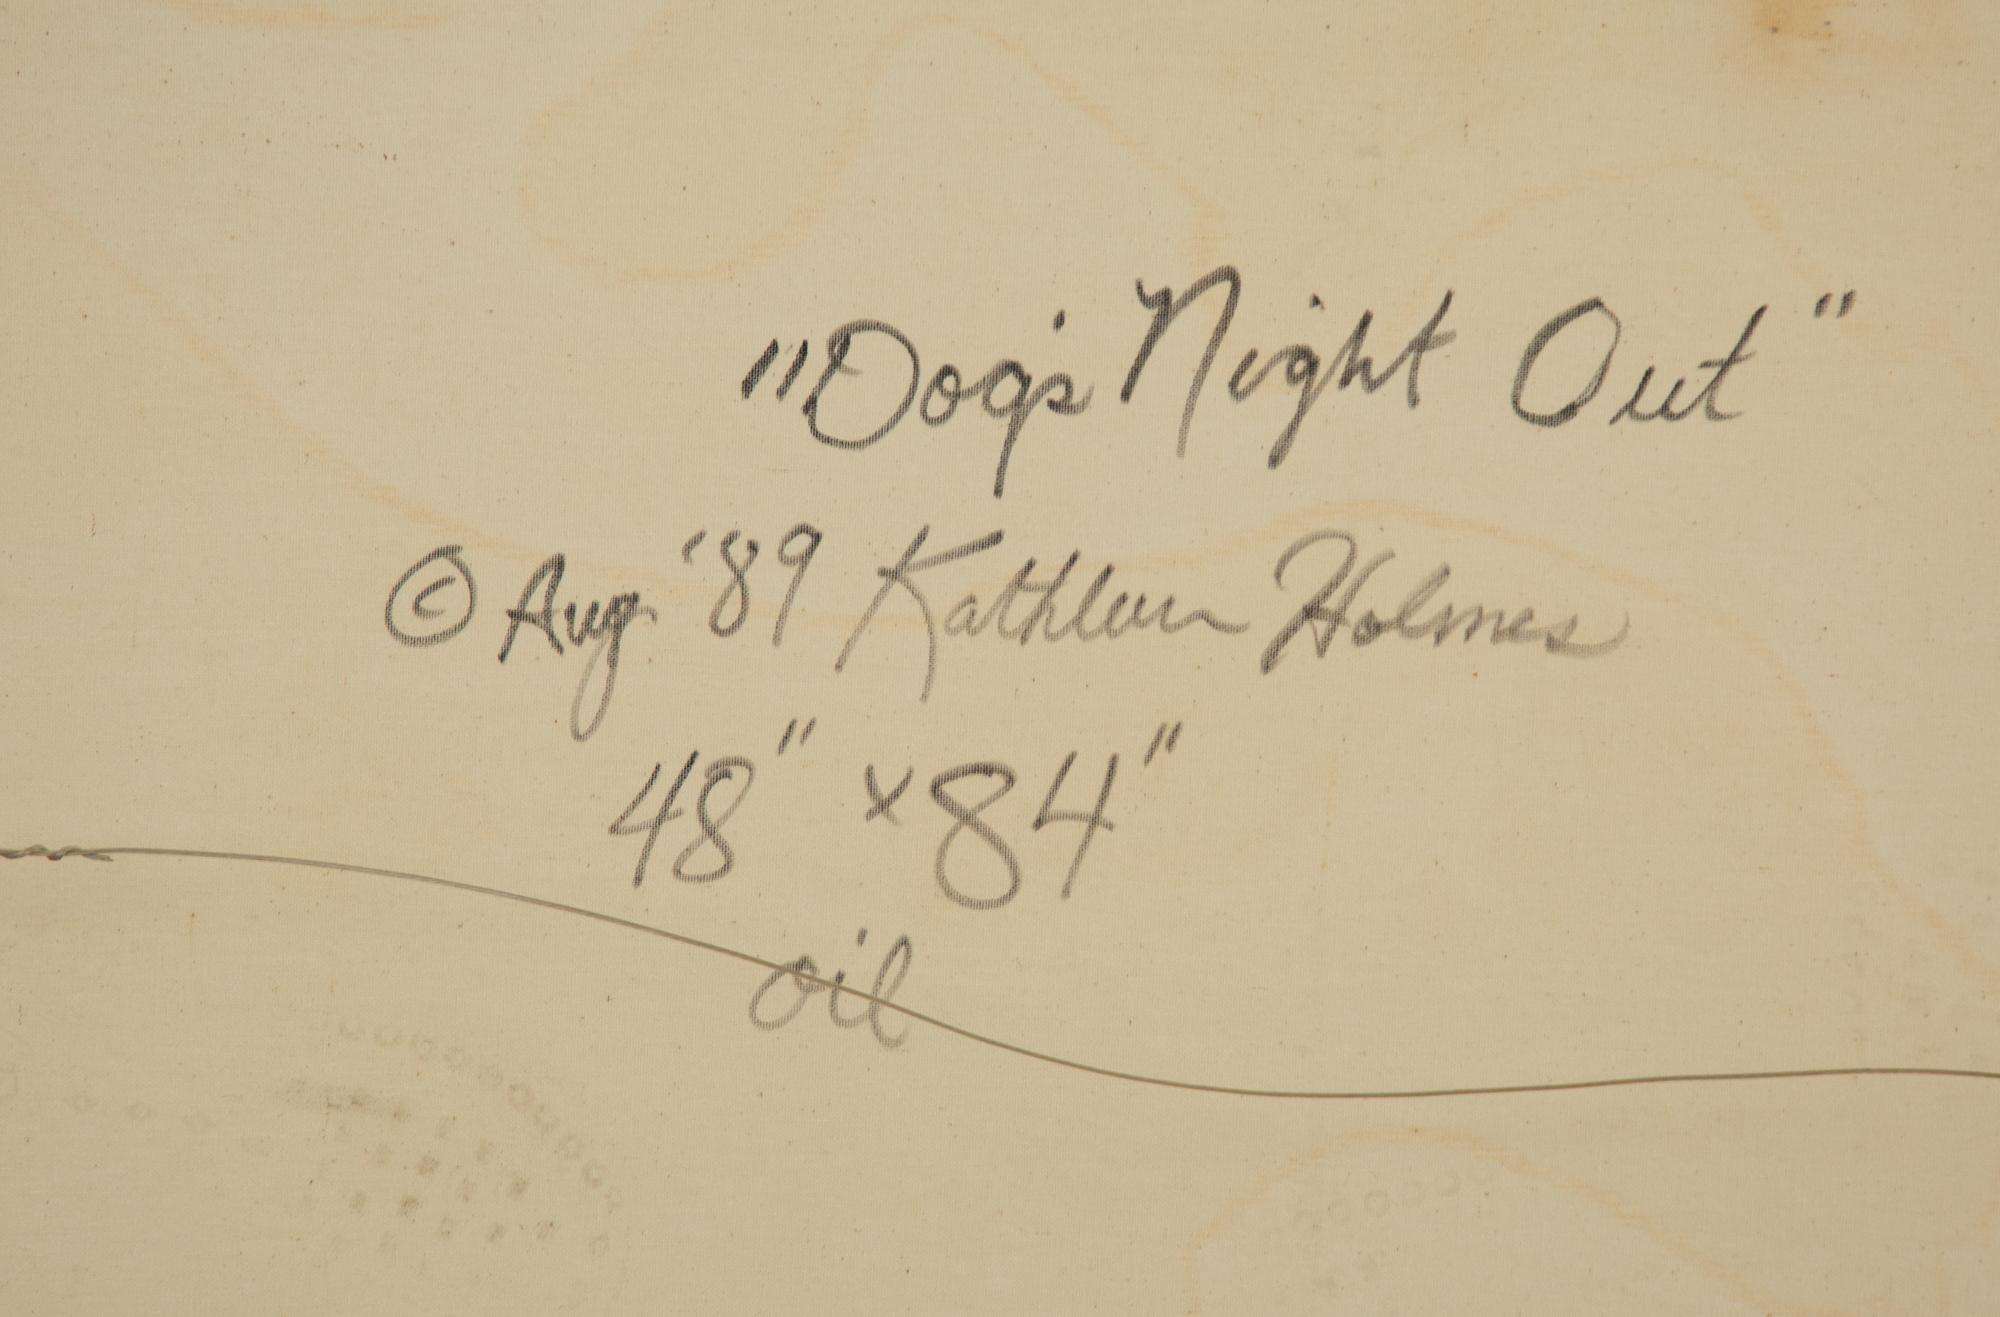 "Dog's Night Out"
© Aug '89 Kathleen Holmes
48" x 84"
oil